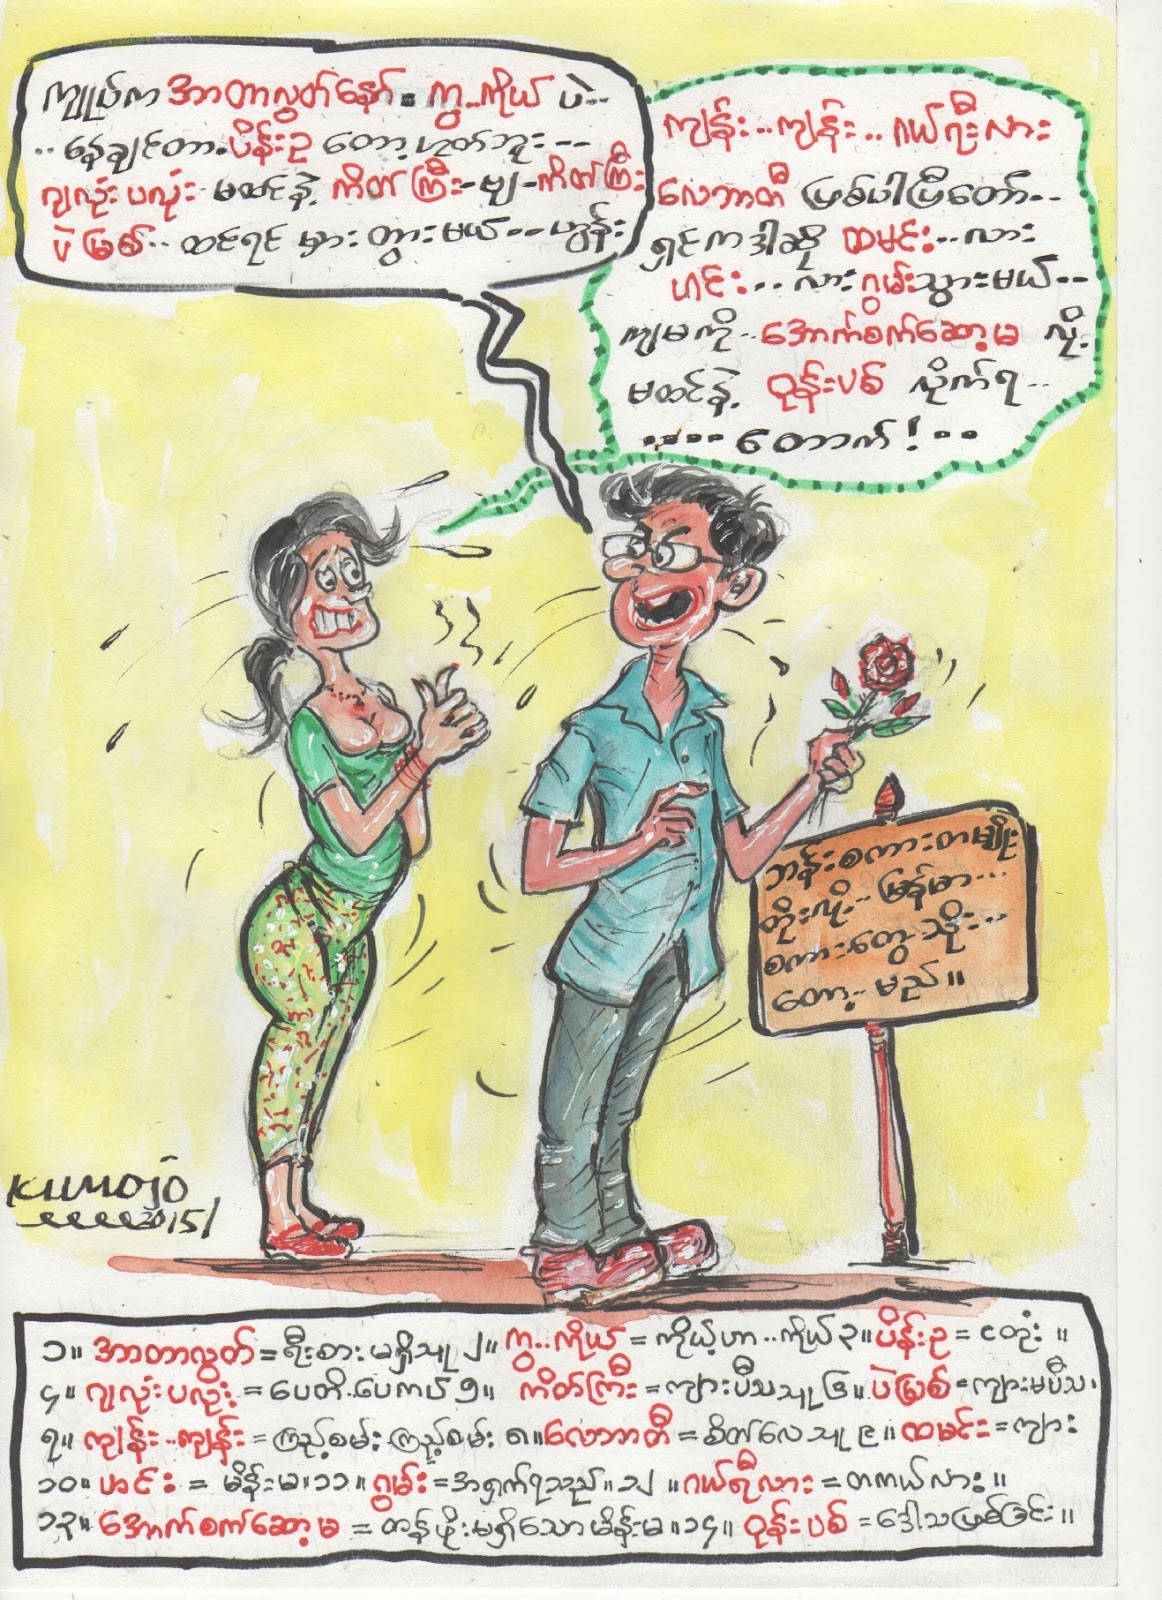 ကျုပ်က အာတာလွတ်နော် - ကွ..ကိုယ် ပဲ..
..နေချင်တာ. ပိန်းဥ တော့ ဟုတ်ဘူး --
ဂျလုံးပလုံး မထင်နဲ့ ကိတ်ကြီး - မျှ - ကိတ်ကြီး
ပဲမြစ်.. ထင်ရင် မှားသွားမယ် -- ဟွန်း
ကျွန်း..ကျွန်း..ဂယ်ရီးလား
လေဘာတီ ဖြစ်ပါပြီတော်..
ရှင်ကဒါဆို ထမင်း..လား
ဟင်း..လား ဂွမ်းသွားမယ်--
ကျမကို..အောက်စက်ဆော့မ လို့
မထင်နဲ့ ဝုန်းပစ် လိုက်ရ..
.... တောက်! ..
ဘန်းစကားတမျိုး
တိုးလို့.. မြန်မာ...
စကားတွေ သိုး...
တော့.. မည်။
KUMOJO
2015
၁။ အာတာလွတ် = ရီးစားမရှိသူ ၂။ ကွ..ကိုယ် = ကိုယ့်ဟာ..ကိုယ် ၃။ ပိန်းဥ = ငတုံး ။
၄။ ဂျလုံးပလုံး = ပေတိ..ပေကပ် ၅။ ကိတ်ကြီး = ကျားပီသသူ ၆။ ပဲမြစ် = ကျားမပီသ.
၇။ ကျွန်း..ကျွန်း = ကြည့်စမ်း ကြည့်စမ်း ၈။ လေဘာတီ = စိတ်လေသူ ၉။ ထမင်း = ကျား
၁၀။ ဟင်း = မိန်းမ ။ ၁၁။ ဂွမ်း = အရှက်ရသည် ။ ၁၂ ။ ဂယ်ရီလား = တကယ်လား ။
၁၃။ အောက်စက်ဆော့မ = တန်ဖိုးမရှိသောမိန်းမ ။ ၁၄။ ဝုန်းပစ် = ဒေါသဖြစ်ခြင်း ။